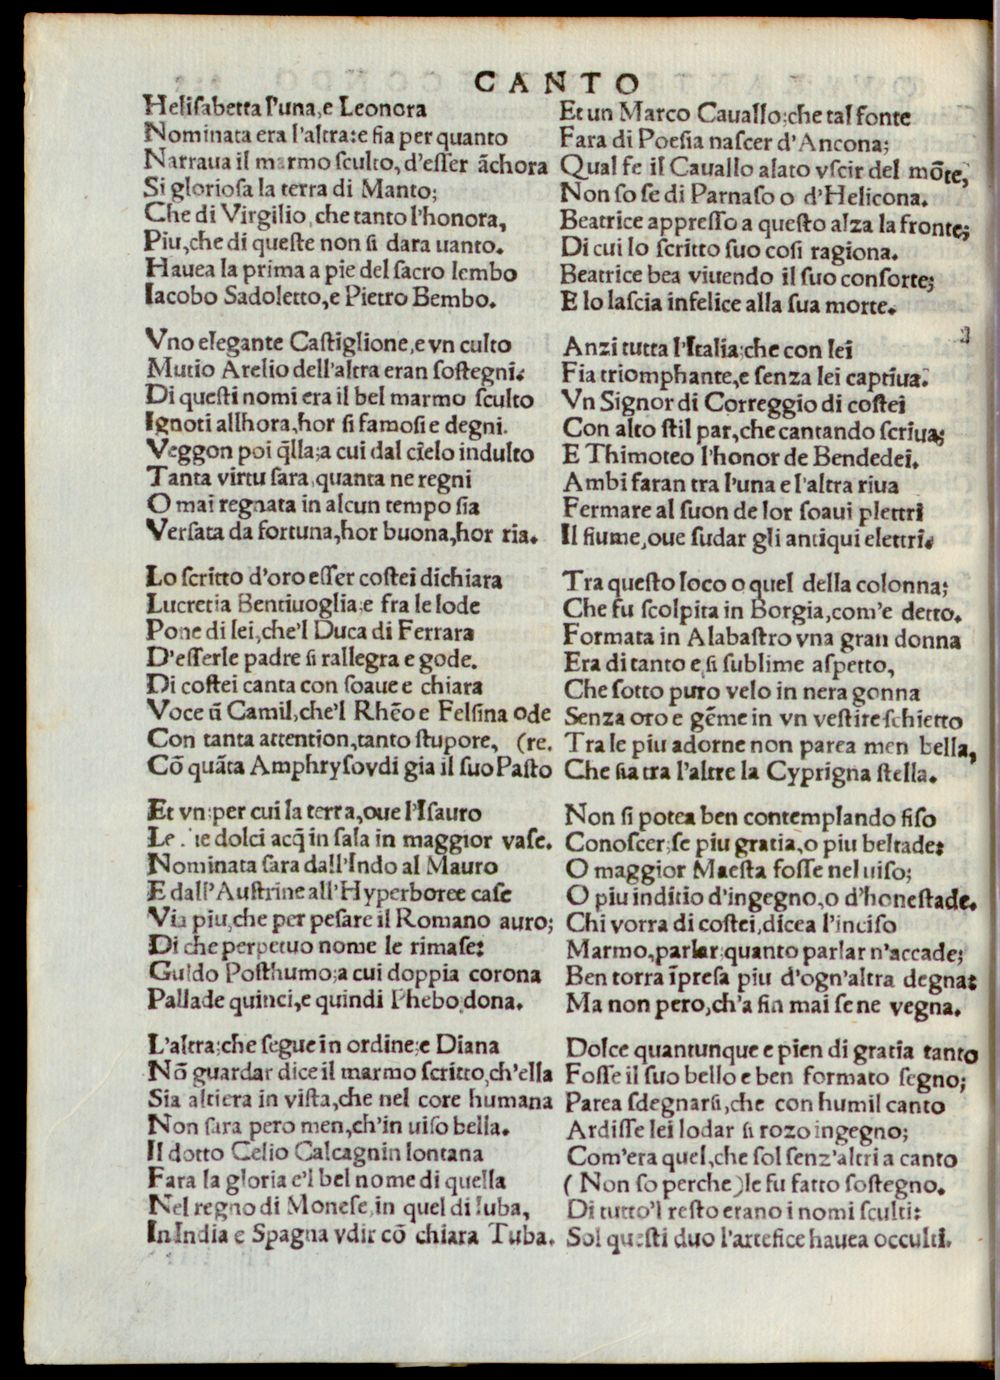 CANTO
Helisabetta l'una, e Leonora
Nominata era l'altra: e fia per quanto
Narraua il marmo sculto, d'esser āchora
Si gloriosa la terra di Manto;
Che di Virgilio, che tanto l'honora,
Piu, che di queste non si dara uanto.
Hauea la prima a pie del sacro lembo
Iacobo Sadoletto, e Pietro Bembo.
Vno elegante Castiglione, e vn culto
Mutio Arelio dell'altra eran sostegni.
Di questi nomi era il bel marmo sculto
Ignoti allhora, hor si famosi e degni.
Veggon poi q̄lla; a cui dal cielo indulto
Tanta virtu sara, quanta ne regni
O mai regnata in alcun tempo sia
Versata da fortuna, hor buona, hor ria.
Lo scritto d'oro esser costei dichiara
Lucretia Bentiuoglia; e fra le lode
Pone di lei, che'l Duca di Ferrara
D'esserle padre si rallegra e gode.
Di costei canta con soaue e chiara
Voce ū Camil, che'l Rhēo e Felsina ode
Con tanta attention, tanto stupore, (re.
Cō quāta Amphrysovdi gia il suo Pasto
Et vn; per cui la terra, oue l'Isauro
Le . ie dolci acq̄ in sala in maggior vase.
Nominata sara dall'Indo al Mauro
E dall'Austrine all'Hyperboree case
Via piu, che per pesare il Romano auro;
Di che perpetuo nome le rimase:
Guido Posthumo; a cui doppia corona
Pallade quinci, e quindi Phebo dona.
L'altra; che segue in ordine; e Diana
Nō guardar dice il marmo scritto, ch'ella
Sia altiera in vista, che nel core humana
Non sara pero men, ch'in uiso bella.
Il dotto Celio Calcagnin lontana
Fara la gloria e'l bel nome di quella
Nel regno di Monese, in quel di Iuba,
In India e Spagna vdir cō chiara Tuba.
Et un Marco Cauallo; che tal fonte
Fara di Poesia nascer d'Ancona;
Qual fe il Cauallo alato vscir del mōte,
Non so se di Parnaso o d'Helicona.
Beatrice appresso a questo alza la fronte;
Di cui lo scritto suo cosi ragiona.
Beatrice bea viuendo il suo consorte;
E lo lascia infelice alla sua morte.
Anzi tutta l'Italia; che con lei
Fia triomphante, e senza lei captiua.
Vn Signor di Correggio di costei
Con alto stil par, che cantando scriua;
E Thimoteo l'honor de Bendedei.
Ambi faran tra l'una e l'altra riua
Fermare al suon de lor soaui plettri
Il fiume, oue sudar gli antiqui elettri.
Tra questo loco o quel della colonna;
Che fu scolpita in Borgia, com'e detto.
Formata in Alabastro vna gran donna
Era di tanto e si sublime aspetto,
Che sotto puro velo in nera gonna
Senza oro e gēme in vn vestire schietto
Tra le piu adorne non parea men bella,
Che sia tra l'altre la Cyprigna stella.
Non si potea ben contemplando fiso
Conoscer; se piu gratia, o piu beltade:
O maggior Maesta fosse nel uiso;
O piu inditio d'ingegno, o d'honestade.
Chi vorra di costei, dicea l'inciso
Marmo, parlar; quanto parlar n'accade;
Ben torra īpresa piu d'ogn'altra degna:
Ma non pero, ch'a fin mai se ne vegna.
Dolce quantunque e pien di gratia tanto
Fosse il suo bello e ben formato segno;
Parea sdegnarsi, che con humil canto
Ardisse lei lodar si rozo ingegno;
Com'era quel, che sol senz'altri a canto
(Non so perche) le fu fatto sostegno.
Di tutto'l resto erano i nomi sculti:
Sol questi duo l'artefice hauea occulti.